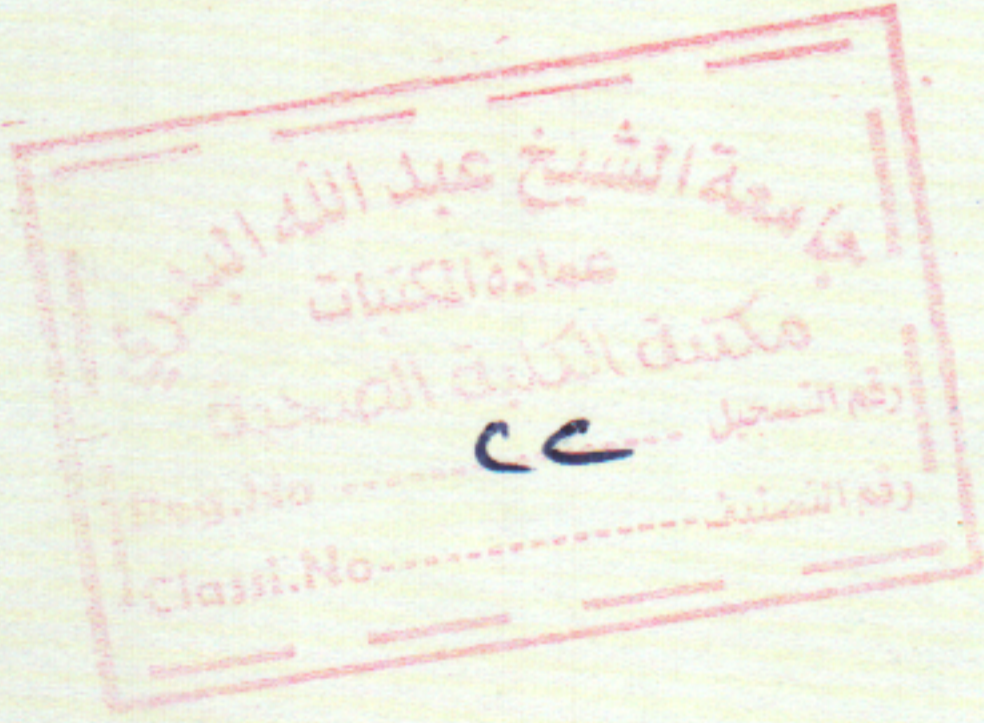 جامعة الشيخ عبد الله البدري
عمادة المكتبات
مكتبة الكلية الصحية
رقم التسجيل ---------- Reg.No
cc
رقم التصنيف ---------- Classi.No